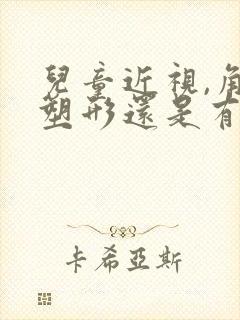 兒童近視,角
塑形還是有
卡希亞斯